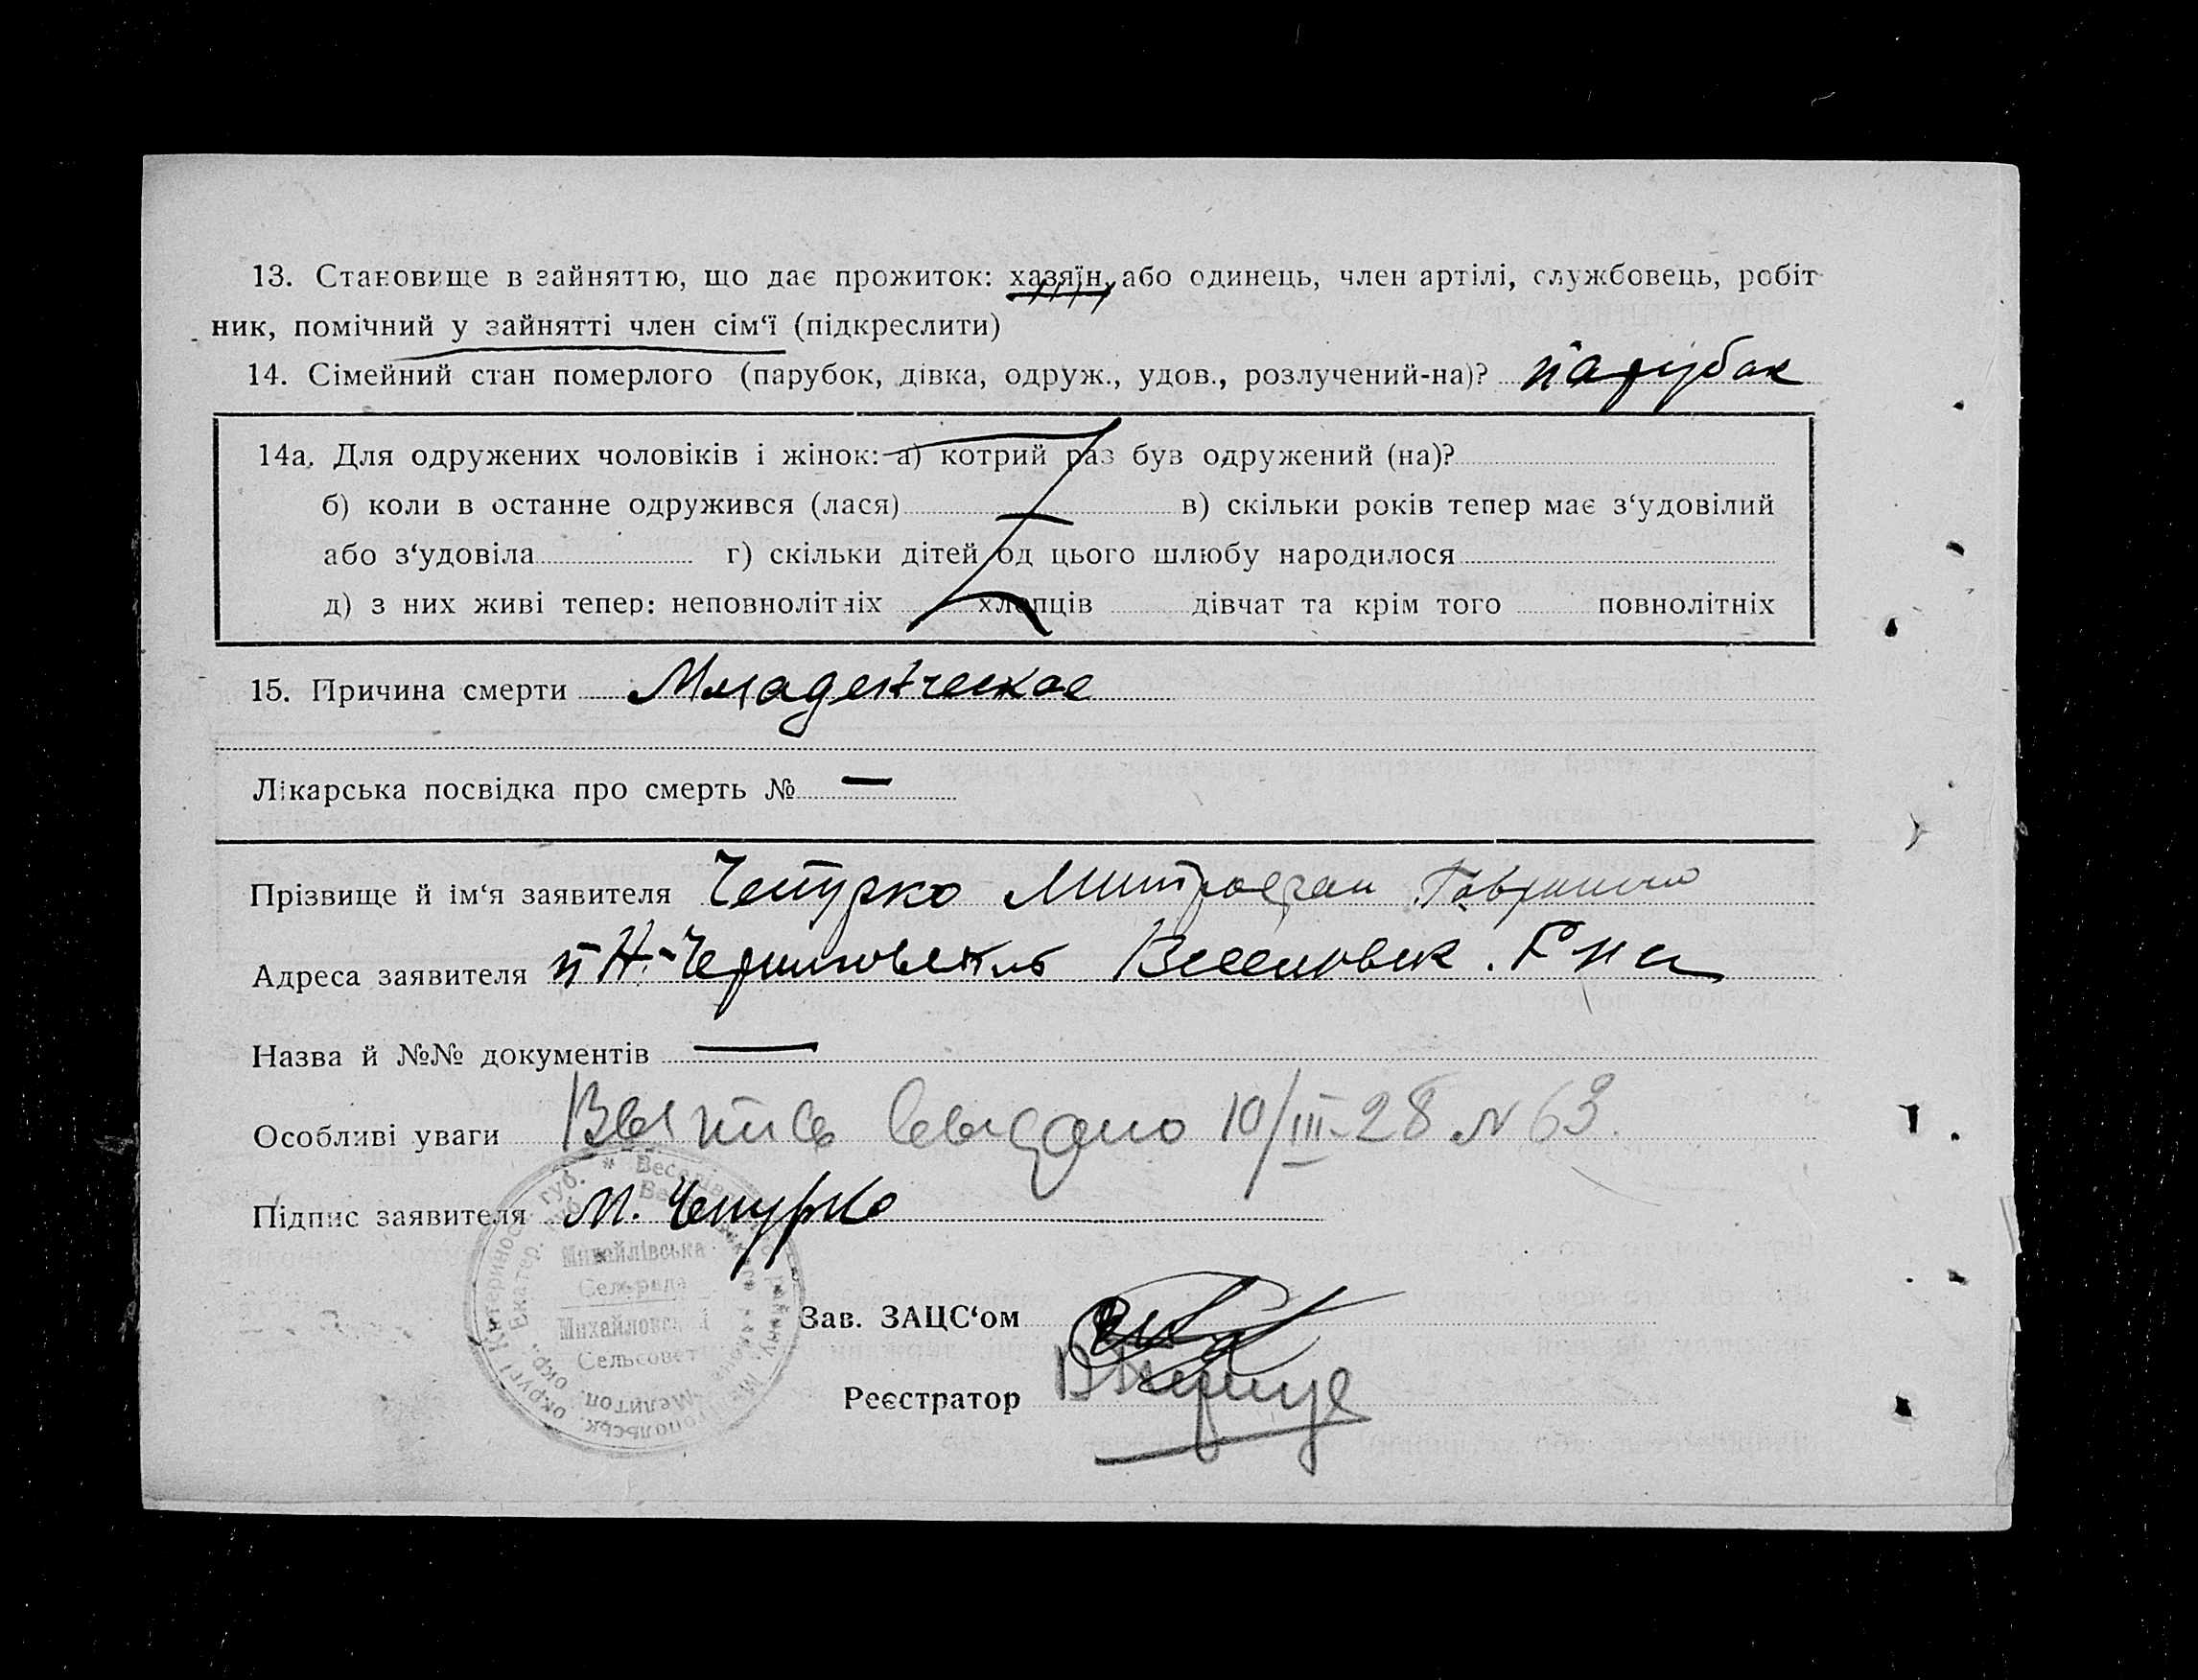 13. Становище в зайняттю, що дає прожиток: хазяїн, або одинець, член артілі, службовець, робіт
ник, помічний у зайнятті член сім‘ї (підкреслити)
14. Сімейний стан померлого (парубок, дівка, одруж., удов., розлучений-на)? парубак
14а. Для одружених чоловіків і жінок: а) котрий раз був одружений (на)?
б) коли в останне одружився (лася) в) скільки років тепер має з‘удовілий
або з‘удовіла г) скільки дітей од цього шлюбу народилося
д) з них живі тепер: неповнолітніх хлопців дівчат та крім того повнолітніх
15. Причина смерти Младенческое
Лікарська посвідка про смерть № —
Прізвище й ім‘я заявителя Чепурко Митрофан
Адреса заявителя п Н.-
Назва й №№ документів —
Особливі уваги 10/III-28 N 63.
Підпис заявителя М. Чепурко
Михайлівська
Сельрада
Михайловский
Сельсовет
Зав. ЗАЦС‘ом
Реєстратор